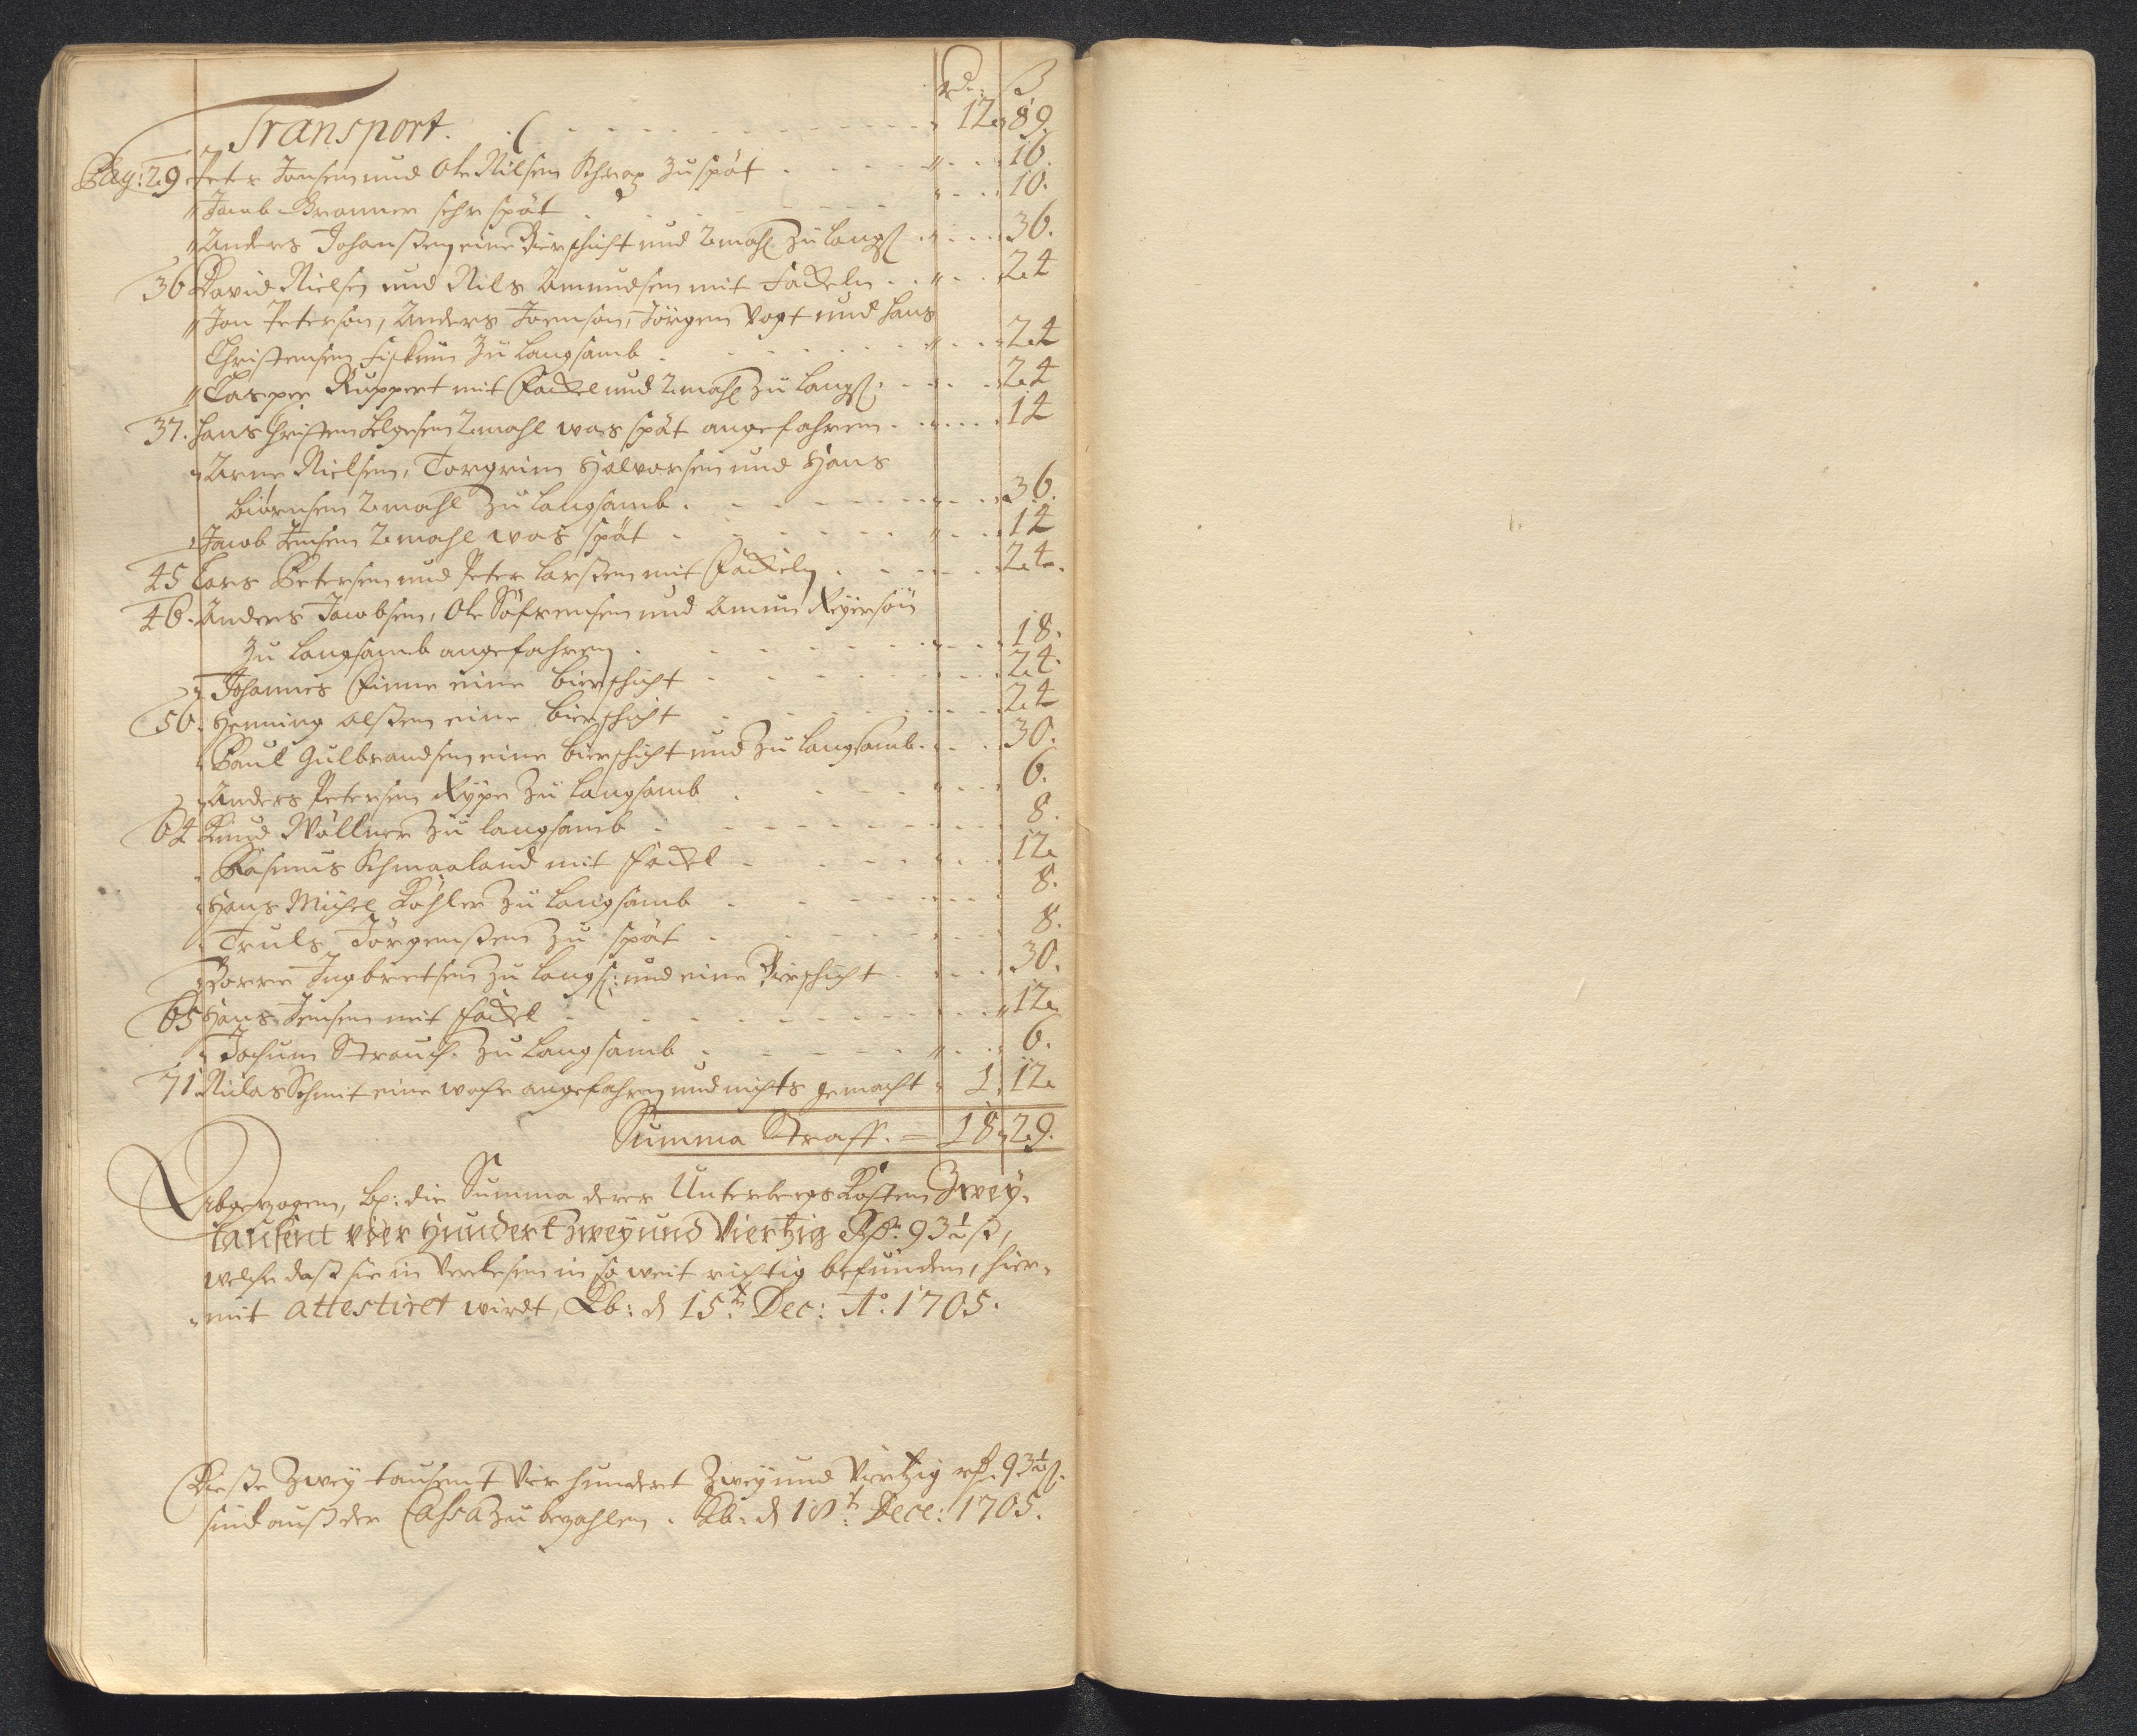 rd: ß
Transport. 12 89.
Pag: 29 Peter Jonsen und Ole Nilsen Schrap zu spät 16.
" Jacob Bronner sehr spät 10.
" Anders Johanßen eine Bierschicht und 2 mahl zu langs: 36.
36 David Nielsen und Nils Amundsen mit Fackeln 24
" Jon Peterson, Anders Joenson, Jörgen Vogt und Hans
Christensen Fiskum zu langsamb 24
" Casper Ruppert mit Fackel und 2 mahl zu langs: 24
37. Hans Christen Helgesen 2 mahl was spät angefahren 12
" Arne Nielsen, Torgrim Halvorsen und Hans
Biörnsen 2 mahl zu langsamb 36.
" Jacob Jensen 2 mahl was spät 12
45 Lars Petersen und Peter Larßen mit Fackeln 24.
46. Anders Jacobsen, Ole Söfrensen und Amun Reyersön
zu langsamb angefahren 18.
" Johannes Finne eine Bierschicht 24.
50. Henning Olßen eine Bierschicht 24
" Paul Gulbrandsen eine Bierschicht und zu langsamb 30.
" Anders Petersen Rype zu langsamb 6.
64 Knud Möller zu langsamb 8.
" Rasmus Schmaaland mit Fackel 12
" Hans Michel Köhler zu langsamb 8.
" Truls Jörgenßen zu spät 8.
" Borre Ingbretsen zu langs: und eine Bierschicht 30.
65 Hans Jensen mit Fackel 12
" Jochum Strauch zu langsamb 6.
71 Niclas Schmit eine woche angefahren und nichts gemacht 1 12
Summa Straff. = 18 29.
Abgezogen, bl: die Summa derer Unterbergs Kosten Zwey-
tausent vier Hundert zwey und Viertzig Rß: 93½ ß,
welche daß sie in Verlesen in so weit richtig befunden, hier-
mit attestiret wirdt, Kb: d 15t: Dec: Ao: 1705.
Dieße Zwey tausent Vier hundert Zwey und Viertzig rß. 93½ ß.
sind auß der Cassa zu bezahlen. Kb: d 18t: Dece: 1705.